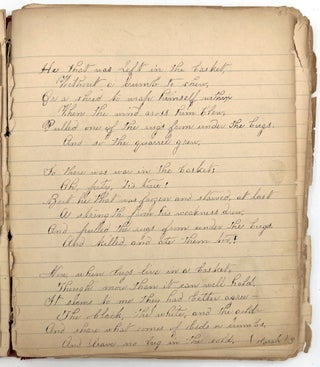 He that was left in the basket,
Without a crumb to chew,
Or a shred to wrap himself within
When the wind across him blew,
Pulled one of the rugs from under the bugs,
And so the quarrel grew.
So there was war in the basket;
Ah, pity, 'tis true!
But he that was frozen and starved, at last
A strength from his weakness drew,
And pulled the rugs from under the bugs
And killed and ate them too!
Now, when bugs live in a basket,
Though more than it can well hold,
It seems to me they had better agree –
The black, the white, and the gold –
And share what comes of beds or crumbs,
And leave no bug in the cold.